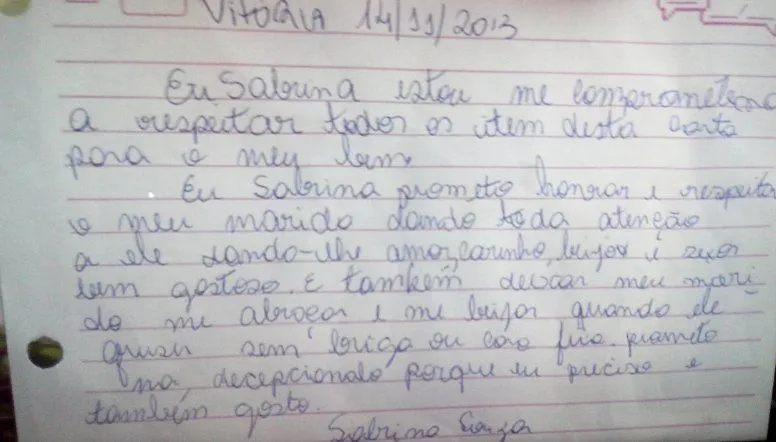 Vitória 14/11/2013
Eu Sabrina estou me comprometendo
a respeitar todos os item desta carta
para o meu bem.
Eu Sabrina prometo honrar e respeitar
o meu marido dando toda atenção
a ele dando-lhe amor, carinho, beijos e sexo
bem gostoso. E também deixar meu mari
do me abraçar e me beijar quando ele
quiser sem briga ou cara feia. prometo
não decepcionalo porque eu preciso e
também gosto.
Sabrina